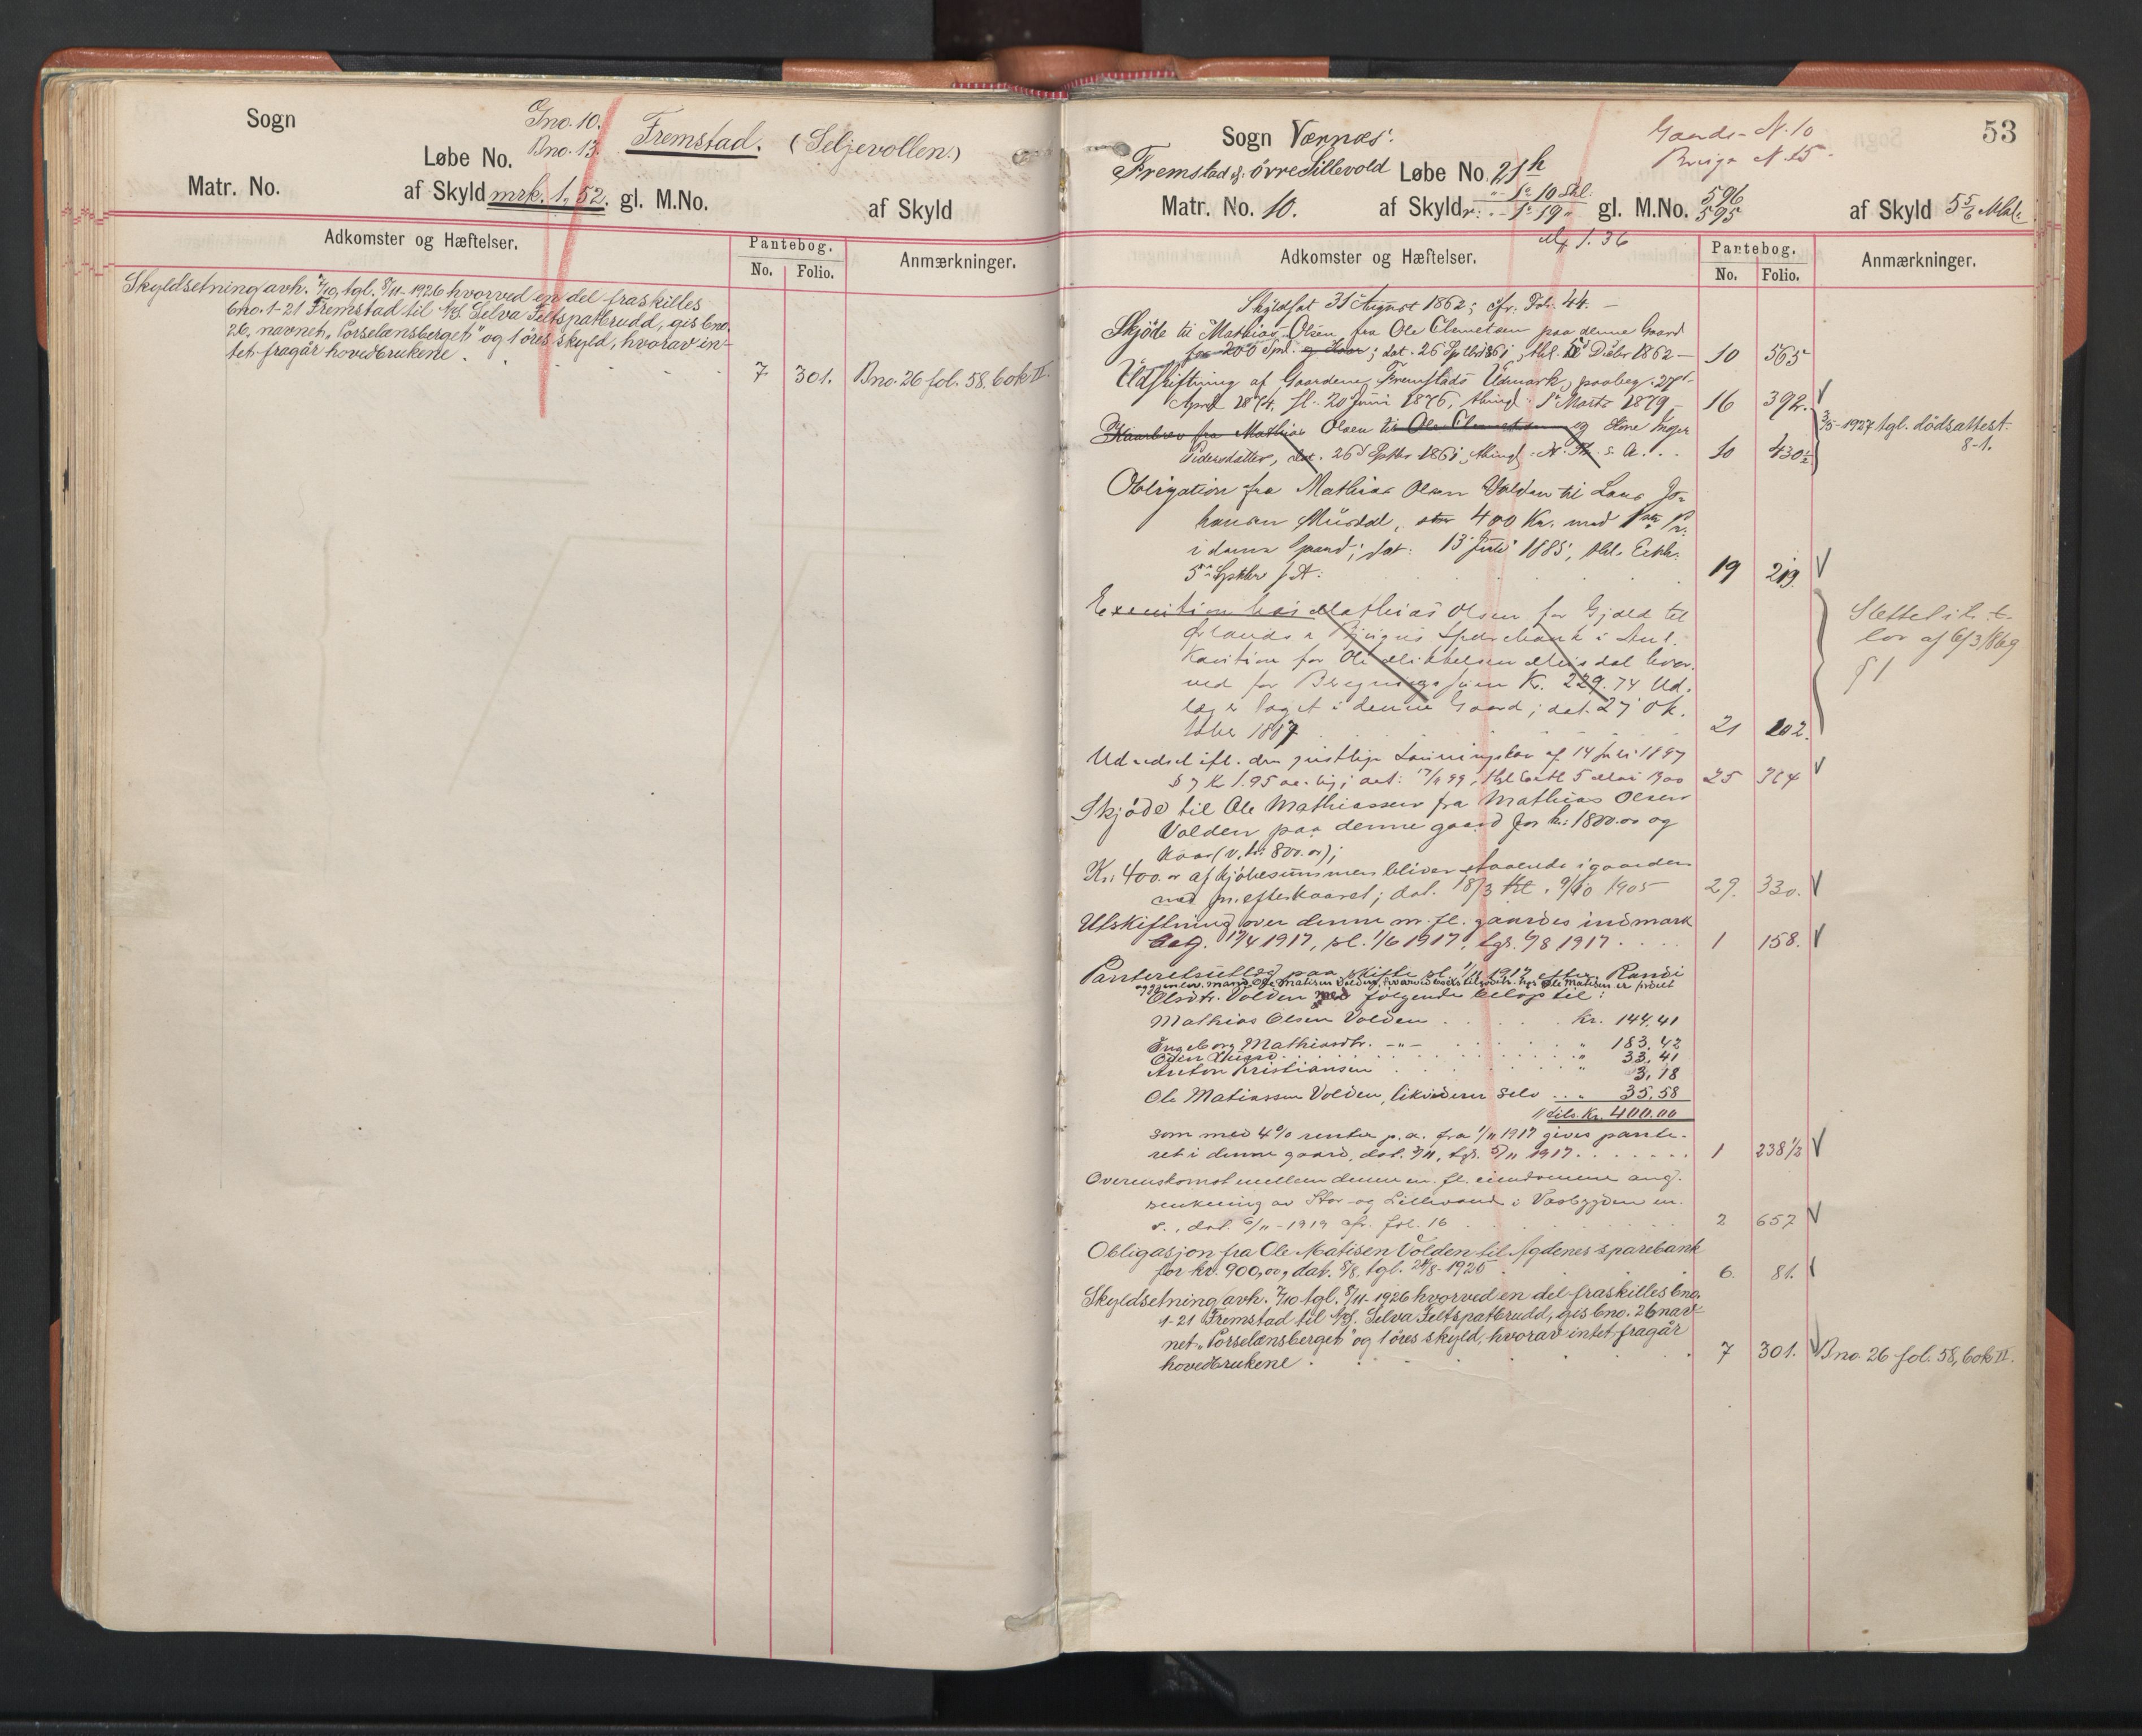 Sogn
Gno. 10.
Løbe No. Bno. 13. Fremstad. (Seljevollen.)
Matr. No. af Skyld mrk. 1,52. gl. M.No. af Skyld
Adkomster og Hæftelser. Pantebog. Anmærkninger.
No. Folio.
Skyldsetning avh. 7/10, tgl. 8/11-1926 hvorved en del fraskilles
bno. 1-21 Fremstad til A/S. Selva Feltspatbrudd, gis bno.
26, navnet "Porselænsberget" og 1 øres skyld, hvorav in-
tet fragår hovedbrukene. 7 301. Bno. 26 fol. 58, bok II.
53
Gaards-N. 10
Brugs N. 15
Sogn Værnæs.
Fremstad øvre Sillevold Løbe No. 21h
Matr. No. 10. af Skyld 1 " 10 Skl. gl. M.No. 596 af Skyld 5 5/6 Mkl.
r: " 1 " 19 " 595
Mk 1.36
Adkomster og Hæftelser. Pantebog. Anmærkninger.
No. Folio.
Skyldsat 31 August 1862; cfr. Fol. 44.
Skjöde til Mathias Olsen fra Ole Clemetsen paa denne Gaard
for 200 Spd. og Kaar; dat. 26 Sptbr 1861, thl. Dcbr 1862 – 10 565
Udskiftning af Gaardene Fremstads Udmark, paabeg. 27de
April 1874, sl. 20 Juni 1876, thingl. 1 Marts 1879 – 16 392.
Kaarbrev fra Mathias Olsen til Ole Clemetsen og Kone Inger
Pedersdatter, dat. 26 Sptbr 1861, thingl. N. Th. s. A. 10 430½
3/5-1927 tgl. dödsattest
8-1.
Obligation fra Mathias Olsen Volden til Lars Jo-
hansen Müsdal, stor 400 Kr. med 1ste Pr.
i denne Gaard; dat: 13 Juli 1885, thl. Extr.
5 Sptbr s. A. 19 219.
Execution hos Mathias Olsen for Gjæld til
Ørlands og Bjugns Sparebank i Anl.
Kaution for Ole Mikkelsen Meisdal hvor-
ved for Beregningssum Kr. 229.74 Ud-
læg er taget i denne Gaard; dat. 27 Ok-
tober 1887 21 102.
Slettet ih. t.
lov af 6/3 1869
§ 1
Udredsel ifl. den geistlige Lønningslov af 14 Juli 1897
§ 7 Kr 1.95 aarlig; dat: 17/11 99, thl Extr 5 Mai 1900 25 364
Skjöde til Ole Mathiassen fra Mathias Olsen
Volden paa denne gaard for kr: 1800.00 og
kaar (v. kr: 800.00);
Kr: 400.00 af kjøbesummen bliver staaende i gaarden
med pr. efter kaaret; dat. 18/3 thl. 9/10 1905 29. 330.
Utskiftning over denne m. fl. gaardes indmark
beg. 17/4 1917, sl. 1/6 1917, tgl. 6/8 1917 1 158.
Panteretsutlæg paa skifte sl. 1/11 1917 efter Randi
og gjenlev. mand Ole Matisen Volden, hvorved boets tilgodeh. hos Ole Matisen er fordelt
Olsdtr. Volden med følgende beløp til:
Mathias Olsen Volden kr. 144,41
Ingeborg Mathiasdtr. –"– " 183,42
" 33,41
Anton Kristiansen " 3,18
Ole Matiassen Volden, likviderer selv " 35,58
tils. Kr. 400.00
som med 4% renter p.a. fra 1/11 1917 gives pante-
ret i denne gaard, dat. 3/11, tgl. 5/11 1917 1 238½
Overenskomst mellem denne m. fl. eiendomme ang.
senkning av Stor- og Lillevand i Vasbygden m.
v., dat. 6/11-1919 cfr. fol. 16 2 657
Obligasjon fra Ole Matisen Volden til Agdenes sparebank
for kr. 900,00, dat. 8/8, tgl. 24/8-1925 6. 81.
Skyldsetning avh. 7/10 tgl. 8/11-1926 hvorved en del fraskilles bno.
1-21 Fremstad til A/S. Selva Feltspatbrudd, gis bno. 26 nav-
net "Porselænsberget" og 1 øres skyld, hvorav intet fragår
hovedbrukene. 7 301. Bno. 26 fol. 58, bok II.